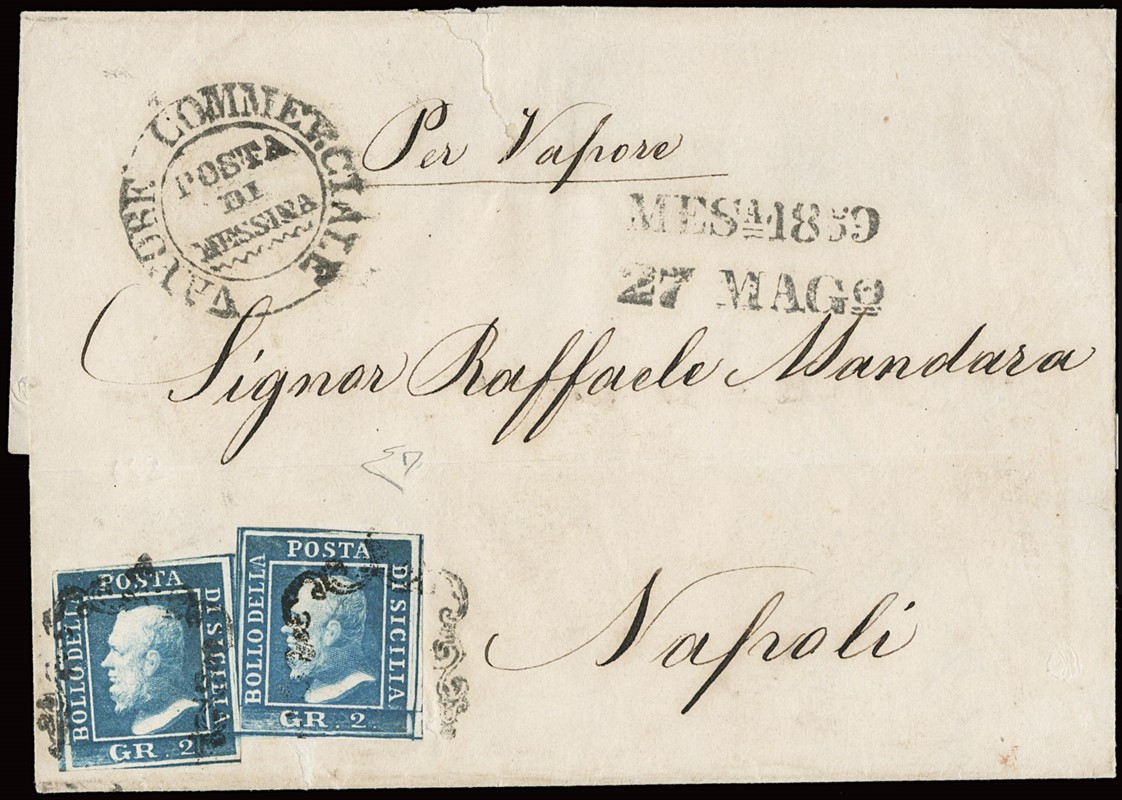 VALORE COMMERCIALE
POSTA
DI
MESSINA
Per Vapore
MESA 1859
27 MAGO
Signor Raffaele Mandara
Napoli
BOLLO DELLA
POSTA
DI SICILIA
GR. 2
BOLLO DELLA
POSTA
DI SICILIA
GR. 2.